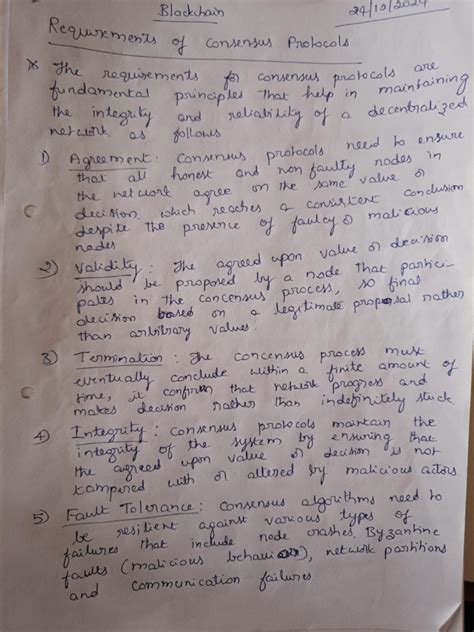 Blockchain
24/10/2024
Requirements of Consensus Protocols
* The requirements for consensus protocols are
fundamental principles that help in maintaining
the integrity and reliability of a decentralized
network as follows
1) Agreement: Consensus protocols need to ensure
that all honest and non faulty nodes in
the network agree on the same value or
decision, which reaches a consistent conclusion
despite the presence of faulty or malicious
nodes
2) Validity: The agreed upon value or decision
should be proposed by a node that partici-
pates in the concensus process, so final
decision based on a legitimate proposal rather
than arbitrary values.
3) Termination: The concensus process must
eventually conclude within a finite amount of
time, it confirm that network progress and
makes decision rather than indefinitely stuck
4) Integrity: Consensus protocols maintain the
integrity of the system by ensuring that
the agreed upon value or decision is not
tampered with or altered by malicious actors
5) Fault Tolerance: Consensus algorithms need to
be resilient against various types of
failures that include node crashes, Byzantine
faults (malicious behaviour), network partitions
and communication failures